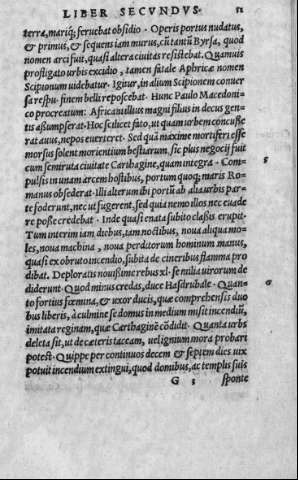 LIBER SECVNDVS. 51
terræ, mariq; feruebat obsidio. Operis portus nudatus,
& primus, & sequens iam murus, cũ tantũ Byrsa, quod
nomen arci fuit, quasi altera ciuitas resistebat. Quamuis
profligato urbis excidio, tamen fatale Aphricæ nomen
Scipionum uidebatur. Igitur, in alium Scipionem conuer
sa respu. finem belli reposcebat. Hunc Paulo Macedoni-
co procreatum: Africani illius magni filius in decus gen-
tis assumpserat. Hoc scilicet fato, ut quam urbem concusse
rat auus, nepos euerteret. Sed quia maxime mortiferi esse
morsus solent morientium bestiarum, sic plus negocij fuit
cum semiruta ciuitate Carthagine, quam integra. Com-
pulsis in unam arcem hostibus, portum quoq; maris Ro-
manus obsederat. Illi alterum ibi portũ ab alia urbis par-
te foderunt, nec ut fugerent, sed quia nemo illos nec euade
re posse credebat. Inde quasi enata subito classis erupit.
Tum interim iam diebus, iam noctibus, noua aliqua mo-
les, noua machina, noua perditorum hominum manus,
quasi ex obruto incendio, subita de cineribus flamma pro
dibat. Deploratis nouissime rebus xl. se milia uirorum de
diderunt. Quod minus credas, duce Hasdrubale. Quan-
to fortius fœmina, & uxor ducis, quæ comprehensis duo
bus liberis, à culmine se domus in medium misit incendiũ,
imitata reginam, quæ Carthaginẽ cõdidit. Quanta urbs
deleta sit, ut de cæteris taceam, uel ignium mora probari
potest. Quippe per continuos decem & septem dies uix
potuit incendium extingui, quod domibus, ac templis suis
G 3 sponte